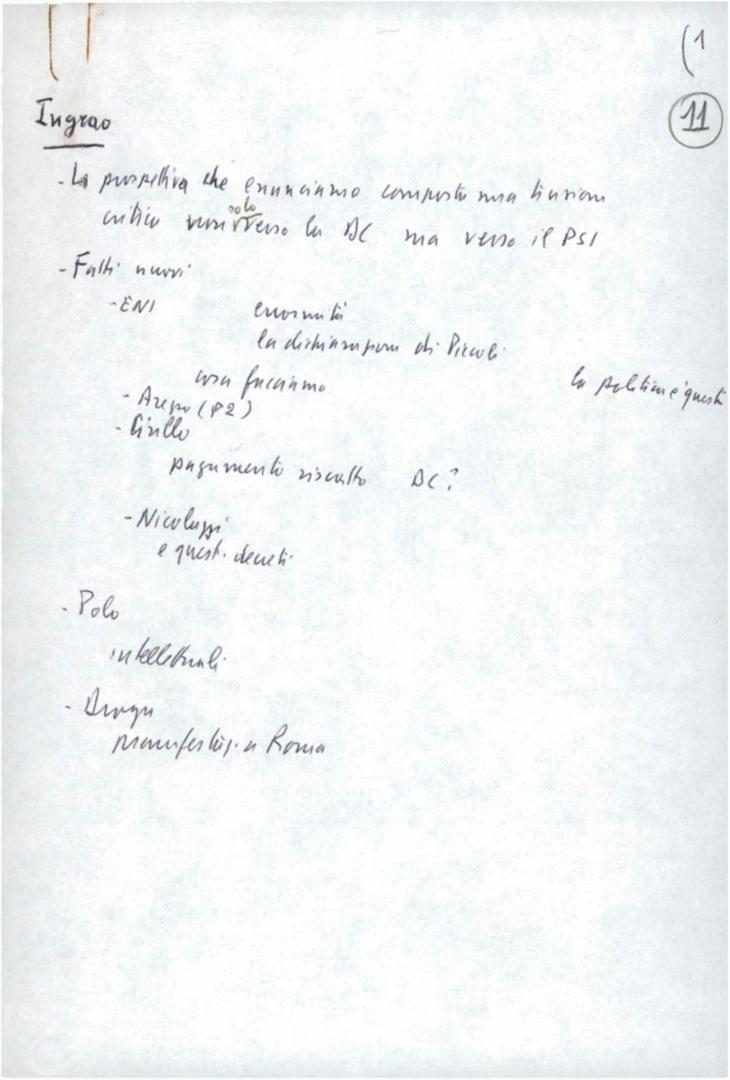 (1
11
Ingrao
- La prospettiva che enunciamo comporta una tensione
critica non solo verso la DC ma verso il PSI
- Fatti nuovi
- ENI enormità
la dichiarazione di Piccoli
cosa facciamo la politica è questa
- Arezzo (P2)
- Cirillo
pagamento riscatto DC?
- Nicolazzi
e questi decreti
- Polo
intellettuali
- Droga
manifestaz. a Roma